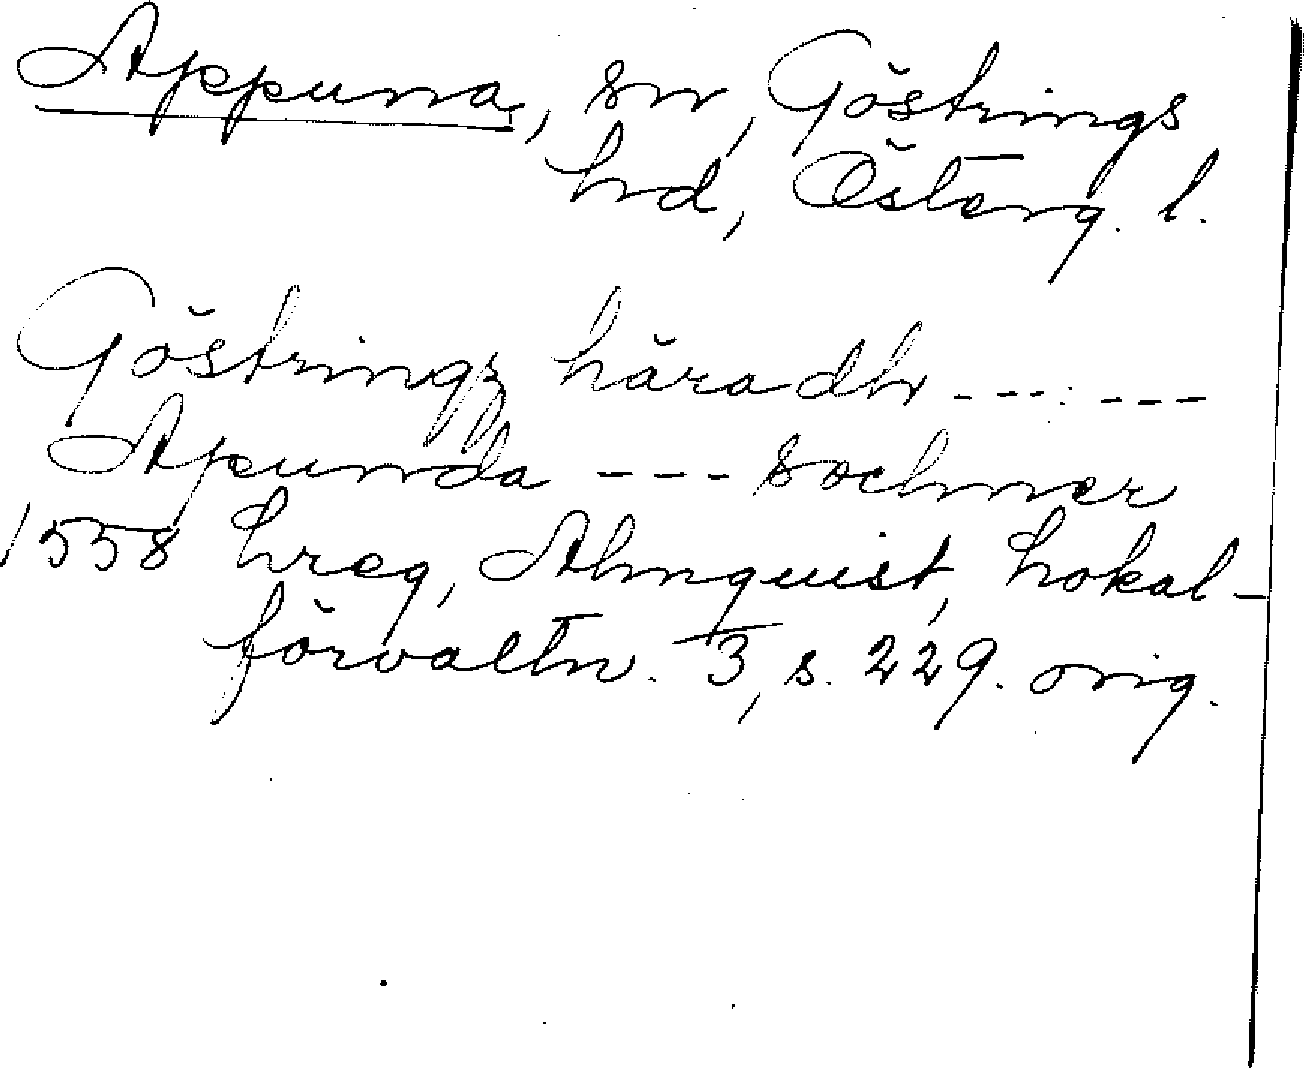 Appuna, sn, Göstrings
hd, Österg. l.
Göstringz häradh ---:---
Apunda --- sochner
1558 hreg, Almquist, Lokal-
förvaltn. 3, s. 229. orig.